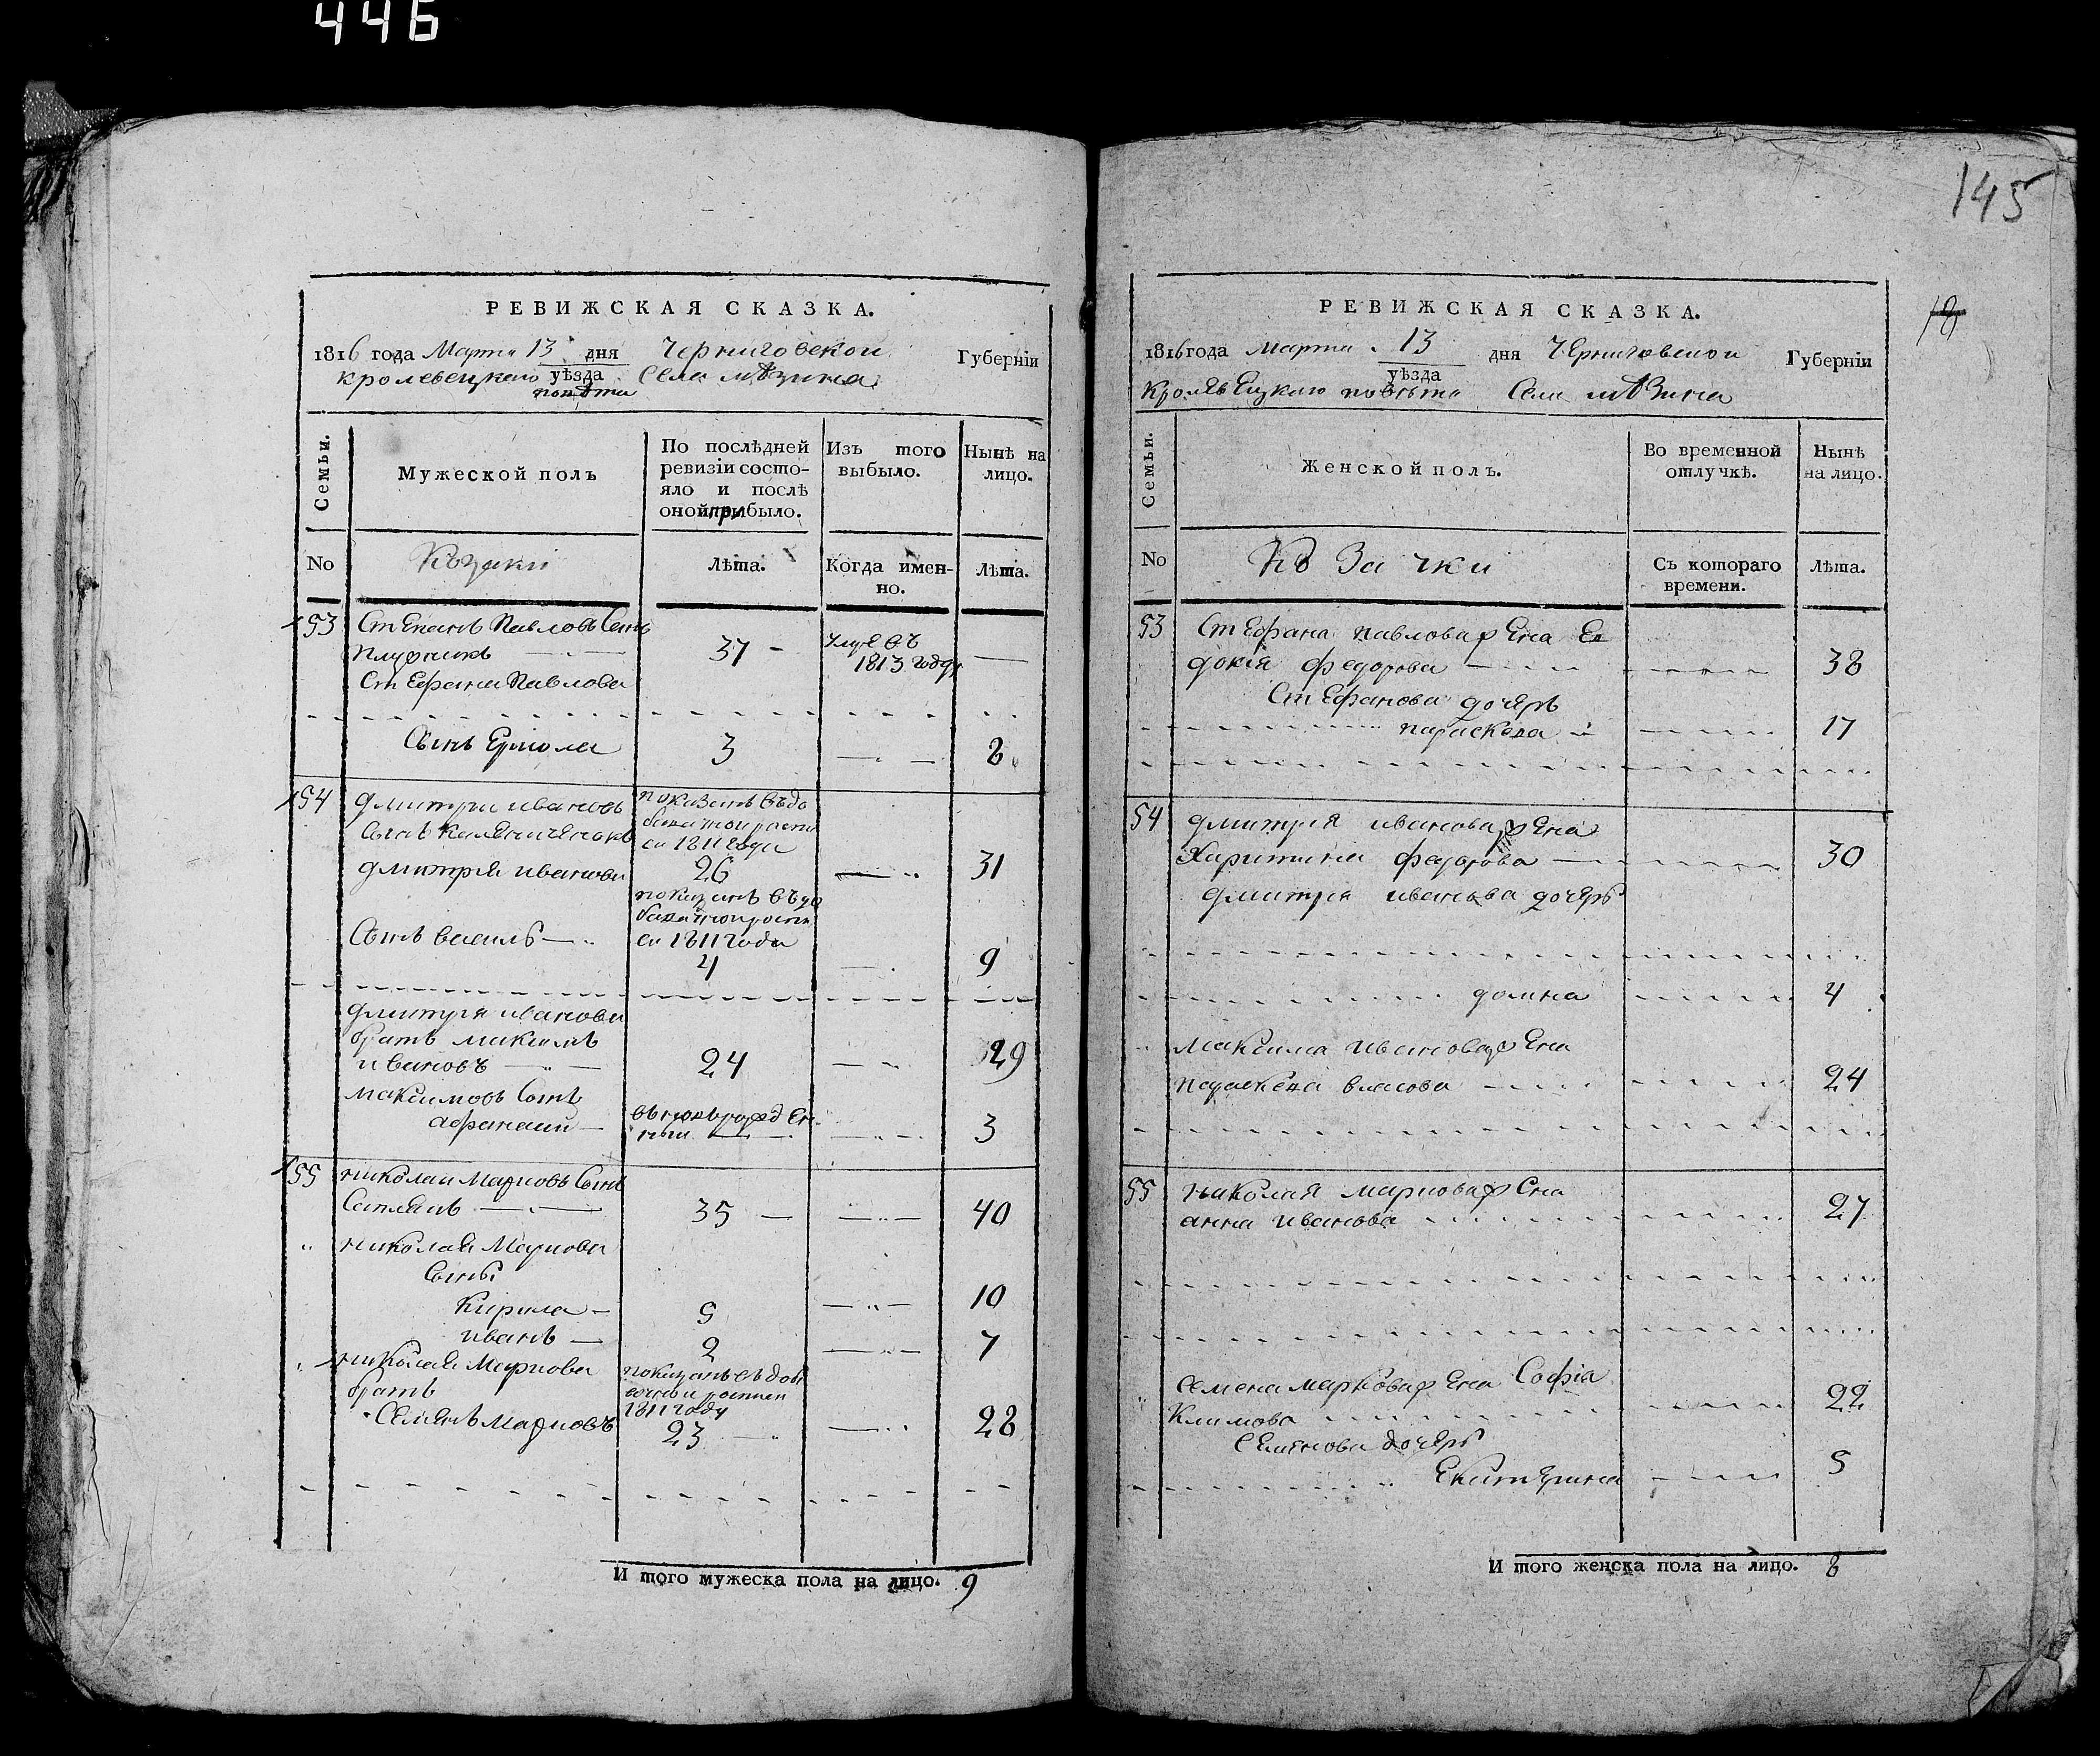 446
РЕВИЖСКАЯ СКАЗКА.
1816 года Марта 13 дня Черниговской Губерніи
кролевецкого уѣзда Села мѣзина
повѣта
Семьи.
Мужеской полъ
По послѣдней ревизіи состо-яло и послѣ оной прибыло.
Изъ того выбыло.
Нынѣ на лицо.
No
Къзаки
Лѣта.
Когда имен-но.
Лѣта.
53 СтEпанъ Павловъ Сынъ
37 умре въ 1813 году
Стефана Павлова
Сынъ Ермола 3 8
54 Дмитри ивановъ
показанъ въ до
Сынъ
1811 года
дмитрия иванова 26 31
показанъ въ до
Сынъ василь 1811 года
4 9
дмитрия иванова
братъ максимъ
ивановъ 24 29
максимовъ Сынъ
афанаши 3
55 николаи Марковъ Сынъ
35 40
николая Маркова
Сыны
Кирила 5 10
иванъ 2 7
николая Маркова
братъ
1811 году
Семенъ Марковъ 23 28
И того мужеска пола на лицо. 9
145
18
РЕВИЖСКАЯ СКАЗКА.
1816 года марта 13 дня Черниговской Губерніи
уѣзда
Кролевецкаго повѣта Села мѣзина
Семьи.
Женской полъ.
Во временной отлучкѣ.
Нынѣ на лицо.
No
Къзачки
Съ котораго времени.
Лѣта.
53 Стефана павлова жена Ев
докія федорова 38
Стефанова дочерь
параскева 17
54 дмитрия иванова жена
Харитина федорова 30
дмитрия иванова дочерь
домна 4
максима иванова жена
параскева власова 24
55 николая маркова жена
анна иванова 27
Семена маркова жена Софія
Климова 22
Семенова дочерь
Екатерина 5
И того женска пола на лицо. 8